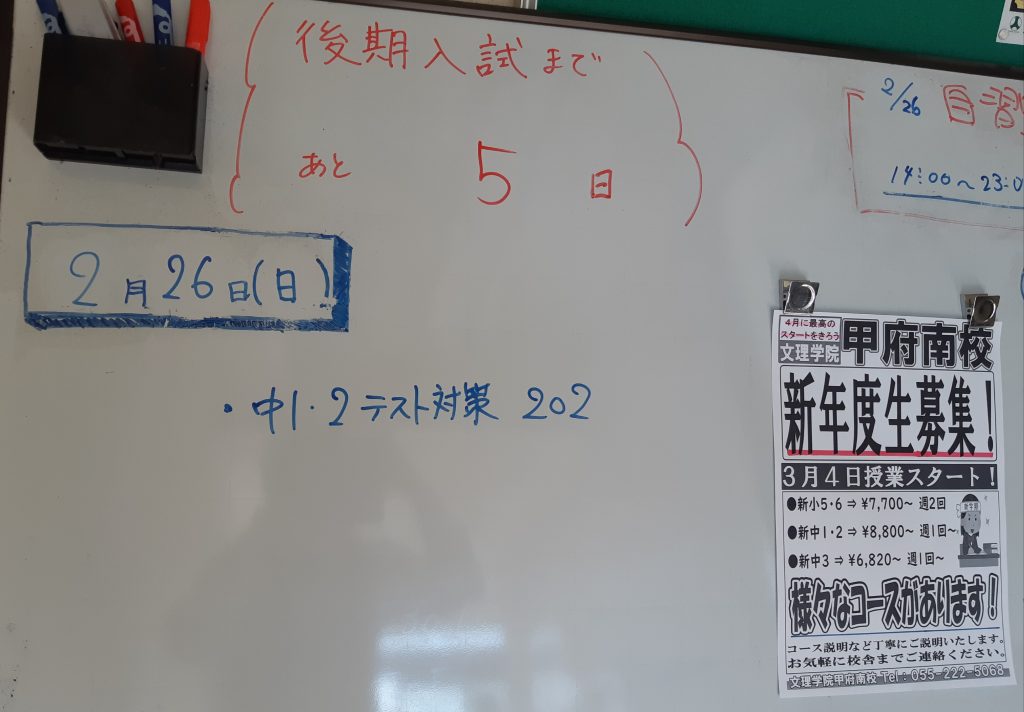 後期入試まで
あと 5 日
2/26 自習
14:00～23:0
2月26日(日)
・中1・2テスト対策 202
4月に最高の
スタートをきろう
文理学院 甲府南校
新年度生募集！
3月4日授業スタート！
●新小5・6⇒¥7,700～ 週2回
●新中1・2⇒¥8,800～ 週1回～
●新中3⇒¥6,820～ 週1回～
様々なコースがあります！
コース説明など丁寧にご説明いたします。
お気軽に校舎までご連絡ください。
文理学院甲府南校 Tel：055-222-5068